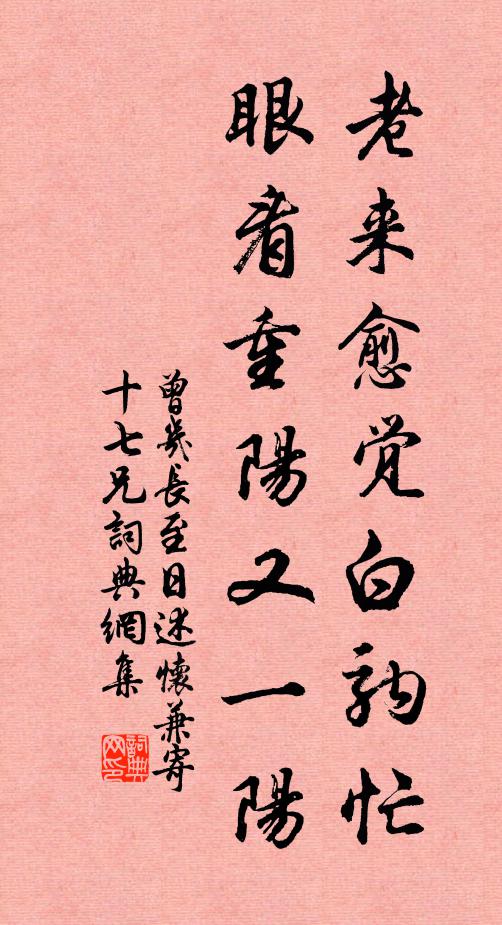 老来愈觉白驹忙
眼看重陽又一陽
曾幾長至日述懷兼寄
十七兄詞典網集
詞典网印